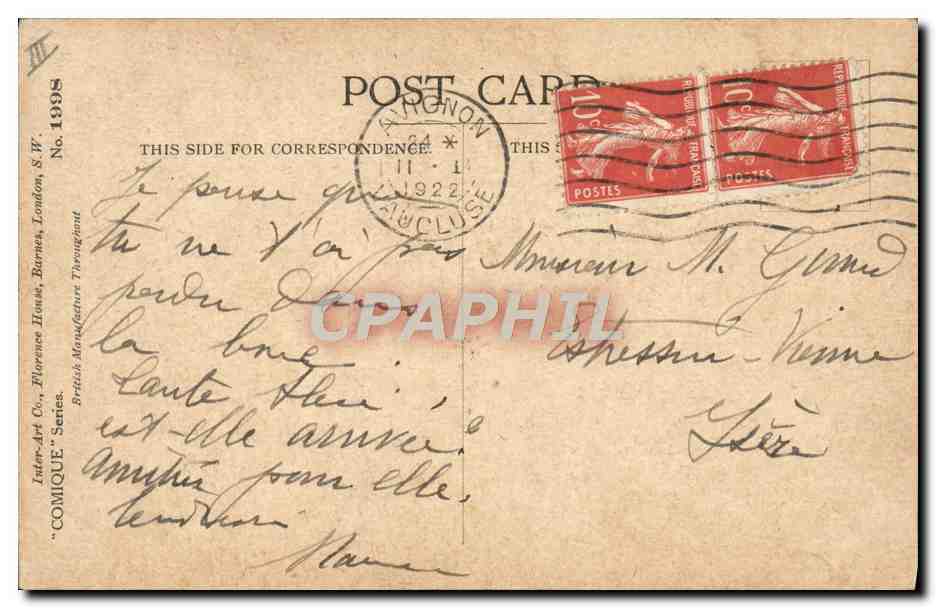 III
POST CARD
THIS SIDE FOR CORRESPONDENCE.
THIS S
AVIGNON
24 *
11 - I
1922
VAUCLUSE
REPUBLIQUE FRANÇAISE
10c
POSTES
REPUBLIQUE FRANÇAISE
10c
POSTES
Je pense que
tu ne t'ai pas
perdu dans
la boue
Tante
est-elle arrivée?
Amitiés pour elle.
Maman
Monsieur M.
Estressin-Vienne
Isère
CPAPHIL
Inter-Art Co., Florence House, Barnes, London, S.W.
"COMIQUE" Series.
No. 1998
British Manufacture Throughout